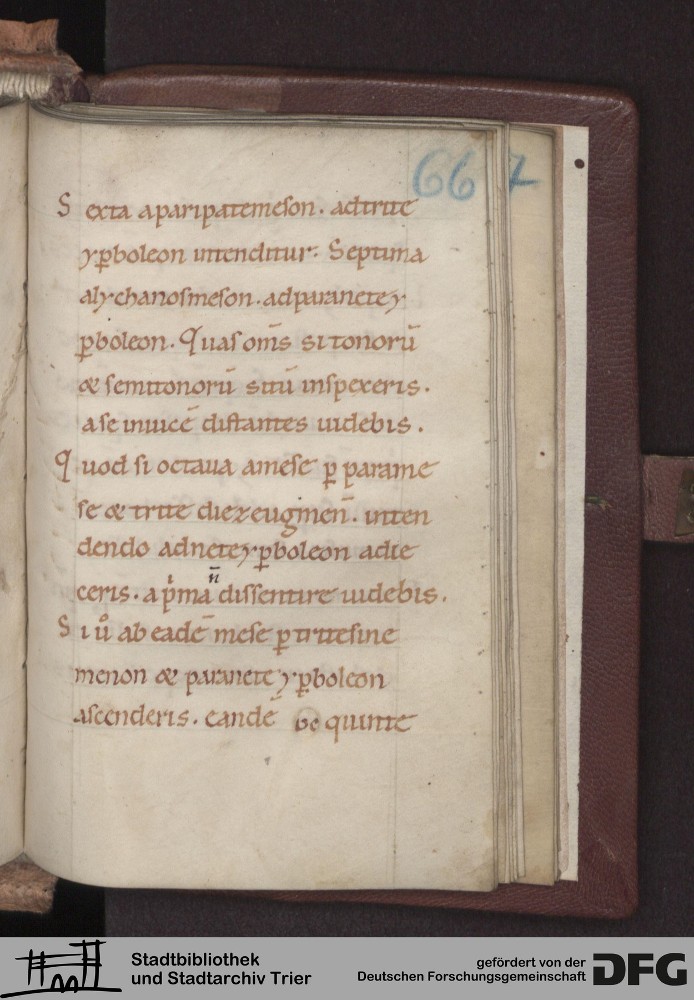 66 7
S exta aparipatemeson. adtrite
yꝑboleon intenditur. Septima
alychanosmeson. adparanetey
ꝑboleon. Quas om̄s si tonorū
& semitonorū sitū inspexeris.
a se inuicē distantes uidebis.
Q uod si octaua amese ꝑ parame
se & trite diezeugmen̄. inten
dendo adneteyꝑboleon adie
ceris. a pͥma n̄ dissentire uidebis.
S i uͦ ab eadē mese ꝑ tritesine
menon & paranete yꝑboleon
ascenderis. eandē be quinte
Stadtbibliothek
und Stadtarchiv Trier
gefördert von der
Deutschen Forschungsgemeinschaft
DFG